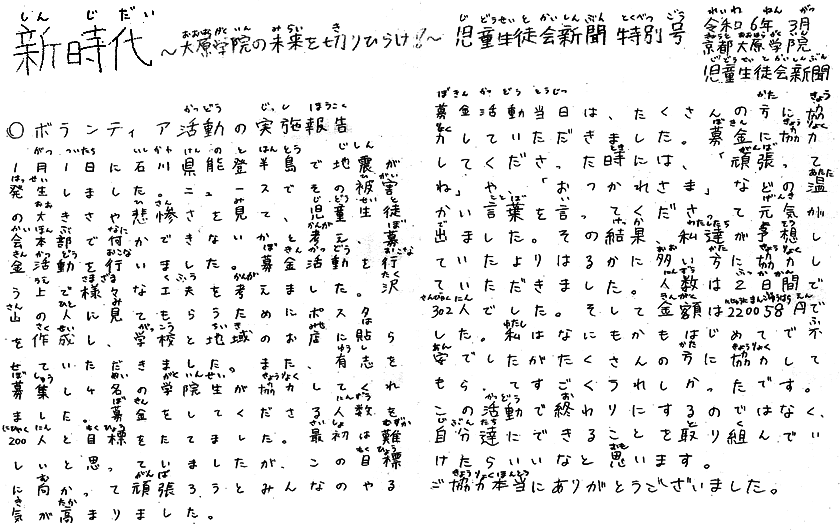 新時代 ～大原学院の未来を切りひらけ!～ 児童生徒会新聞 特別号
令和6年 3月
京都大原学院
児童生徒会新聞
○ボランティア活動の実施報告
1月1日に石川県能登半島で地震が
発生しました。ニュースでその被害
の大きさや悲惨さを見て、児童生徒
会本部で何かできないかと考え、募
金活動を行いました。募金活動を行
う上で様々な工夫を考えました。沢
山の人に見てもらうためにポスター
を作成し、学校と地域のお店に貼ら
せていただきました。また、有志を
募集し4名の学院生が協力してくれ
ました。募金をしてくださる人数を
200人と目標をたてました。最初は難
しいと思っていましたが、この目標
に向かって頑張ろうとみんなのやる
気が高まりました。
募金活動当日は、たくさんの方に協
力していただきました。募金に協力
してくださった時には、「頑張って
ね」や、「おつかれさま」などの温
かい言葉を言ってくださり元気が
出ました。その結果、私達が予想し
ていたよりはるかに多い方に協力し
ていただきました。人数は2日間で
302人でした。そして金額は220058円で
した。私はなにもかもはじめてで不
安でしたがたくさんの方に協力して
もらってすごくうれしかったです。
この活動で終わりにするのではなく、
自分達にできることを取り組んでい
けたらいいなと思います。
ご協力本当にありがとうございました。